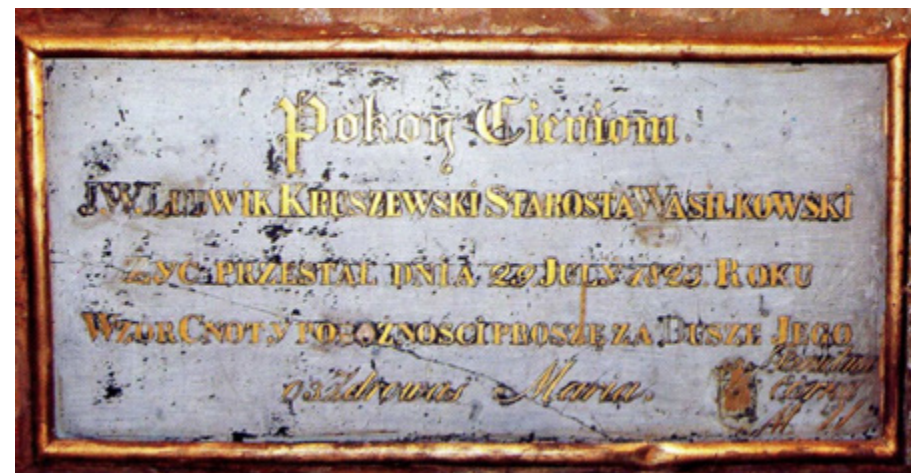 Pokoy Cieniom.
J.W. LUDWIK KRUSZEWSKI STAROSTA WASILKOWSKI
ZYC PRZESTAL DNIA 29 JULY 1823 ROKU
WZOR CNOT, Y POBOZNOSCI PROSZĘ ZA DUSZE JEGO
o 3 Zdrowas Maria.